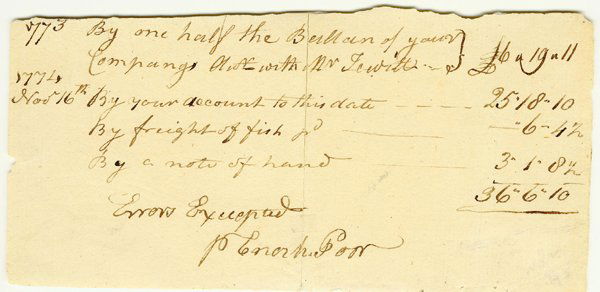 1773 By one half the Ballan of your
Company Acct with Mr Jewitt -- } £6 " 19 " 11
1774
Novr 16th By your account to this date ---- 25 " 18 " 10
By freight of fish pd —— — " 6 " 4½
By a note of hand —— 3 " 1 " 8½
36 " 6 " 10
Errors Excepted
p Enoch Poor